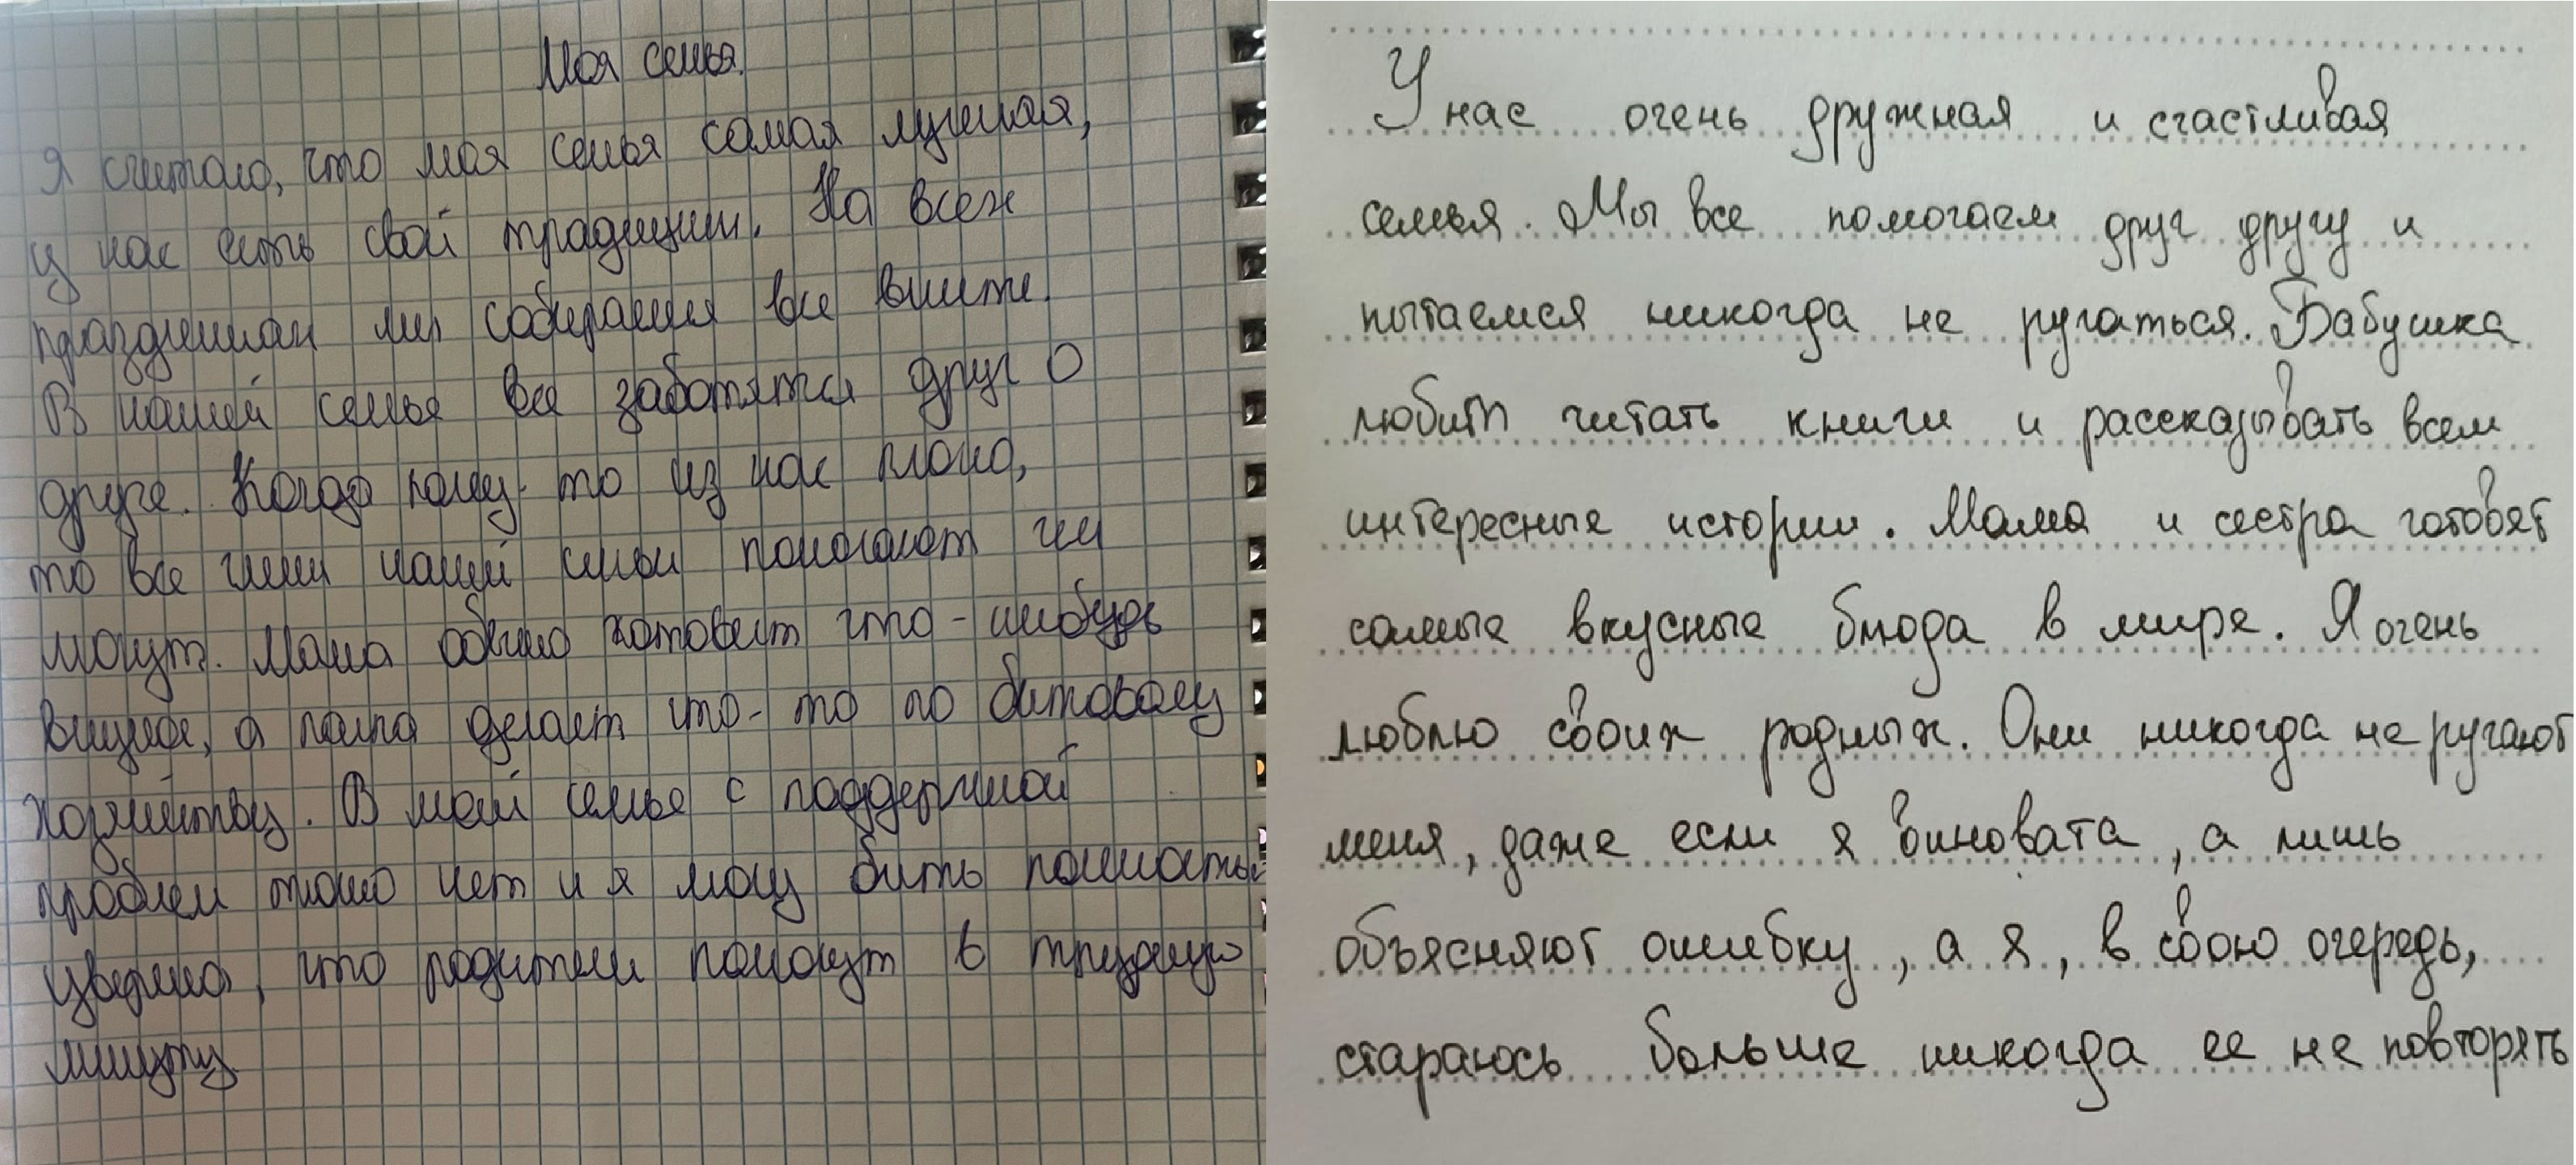 Моя семья.
Я считаю, что моя семья самая лучшая,
у нас есть свой традиции. На всех
праздниках мы собираемся все вместе.
В нашей семье все заботятся друг о
друге. Когда кому-то из нас плохо,
то все члены нашей семьи помогают чем
могут. Мама обычно готовит что-нибудь
вкусное, а папа делает что-то по бытовому
хозяйству. В моей семье с поддержкой
проблем точно нет и я могу быть полностью
уверена, что родители помогут в трудную
минуту
У нас очень дружная и счастливая
семья. Мы все помогаем друг другу и
пытаемся никогда не ругаться. Бабушка
любит читать книги и рассказывать всем
интересные истории. Мама и сестра готовят
самые вкусные блюда в мире. Я очень
люблю своих родных. Они никогда не ругают
меня, даже если я виновата, а лишь
объясняют ошибку, а я, в свою очередь,
стараюсь больше никогда ее не повторять